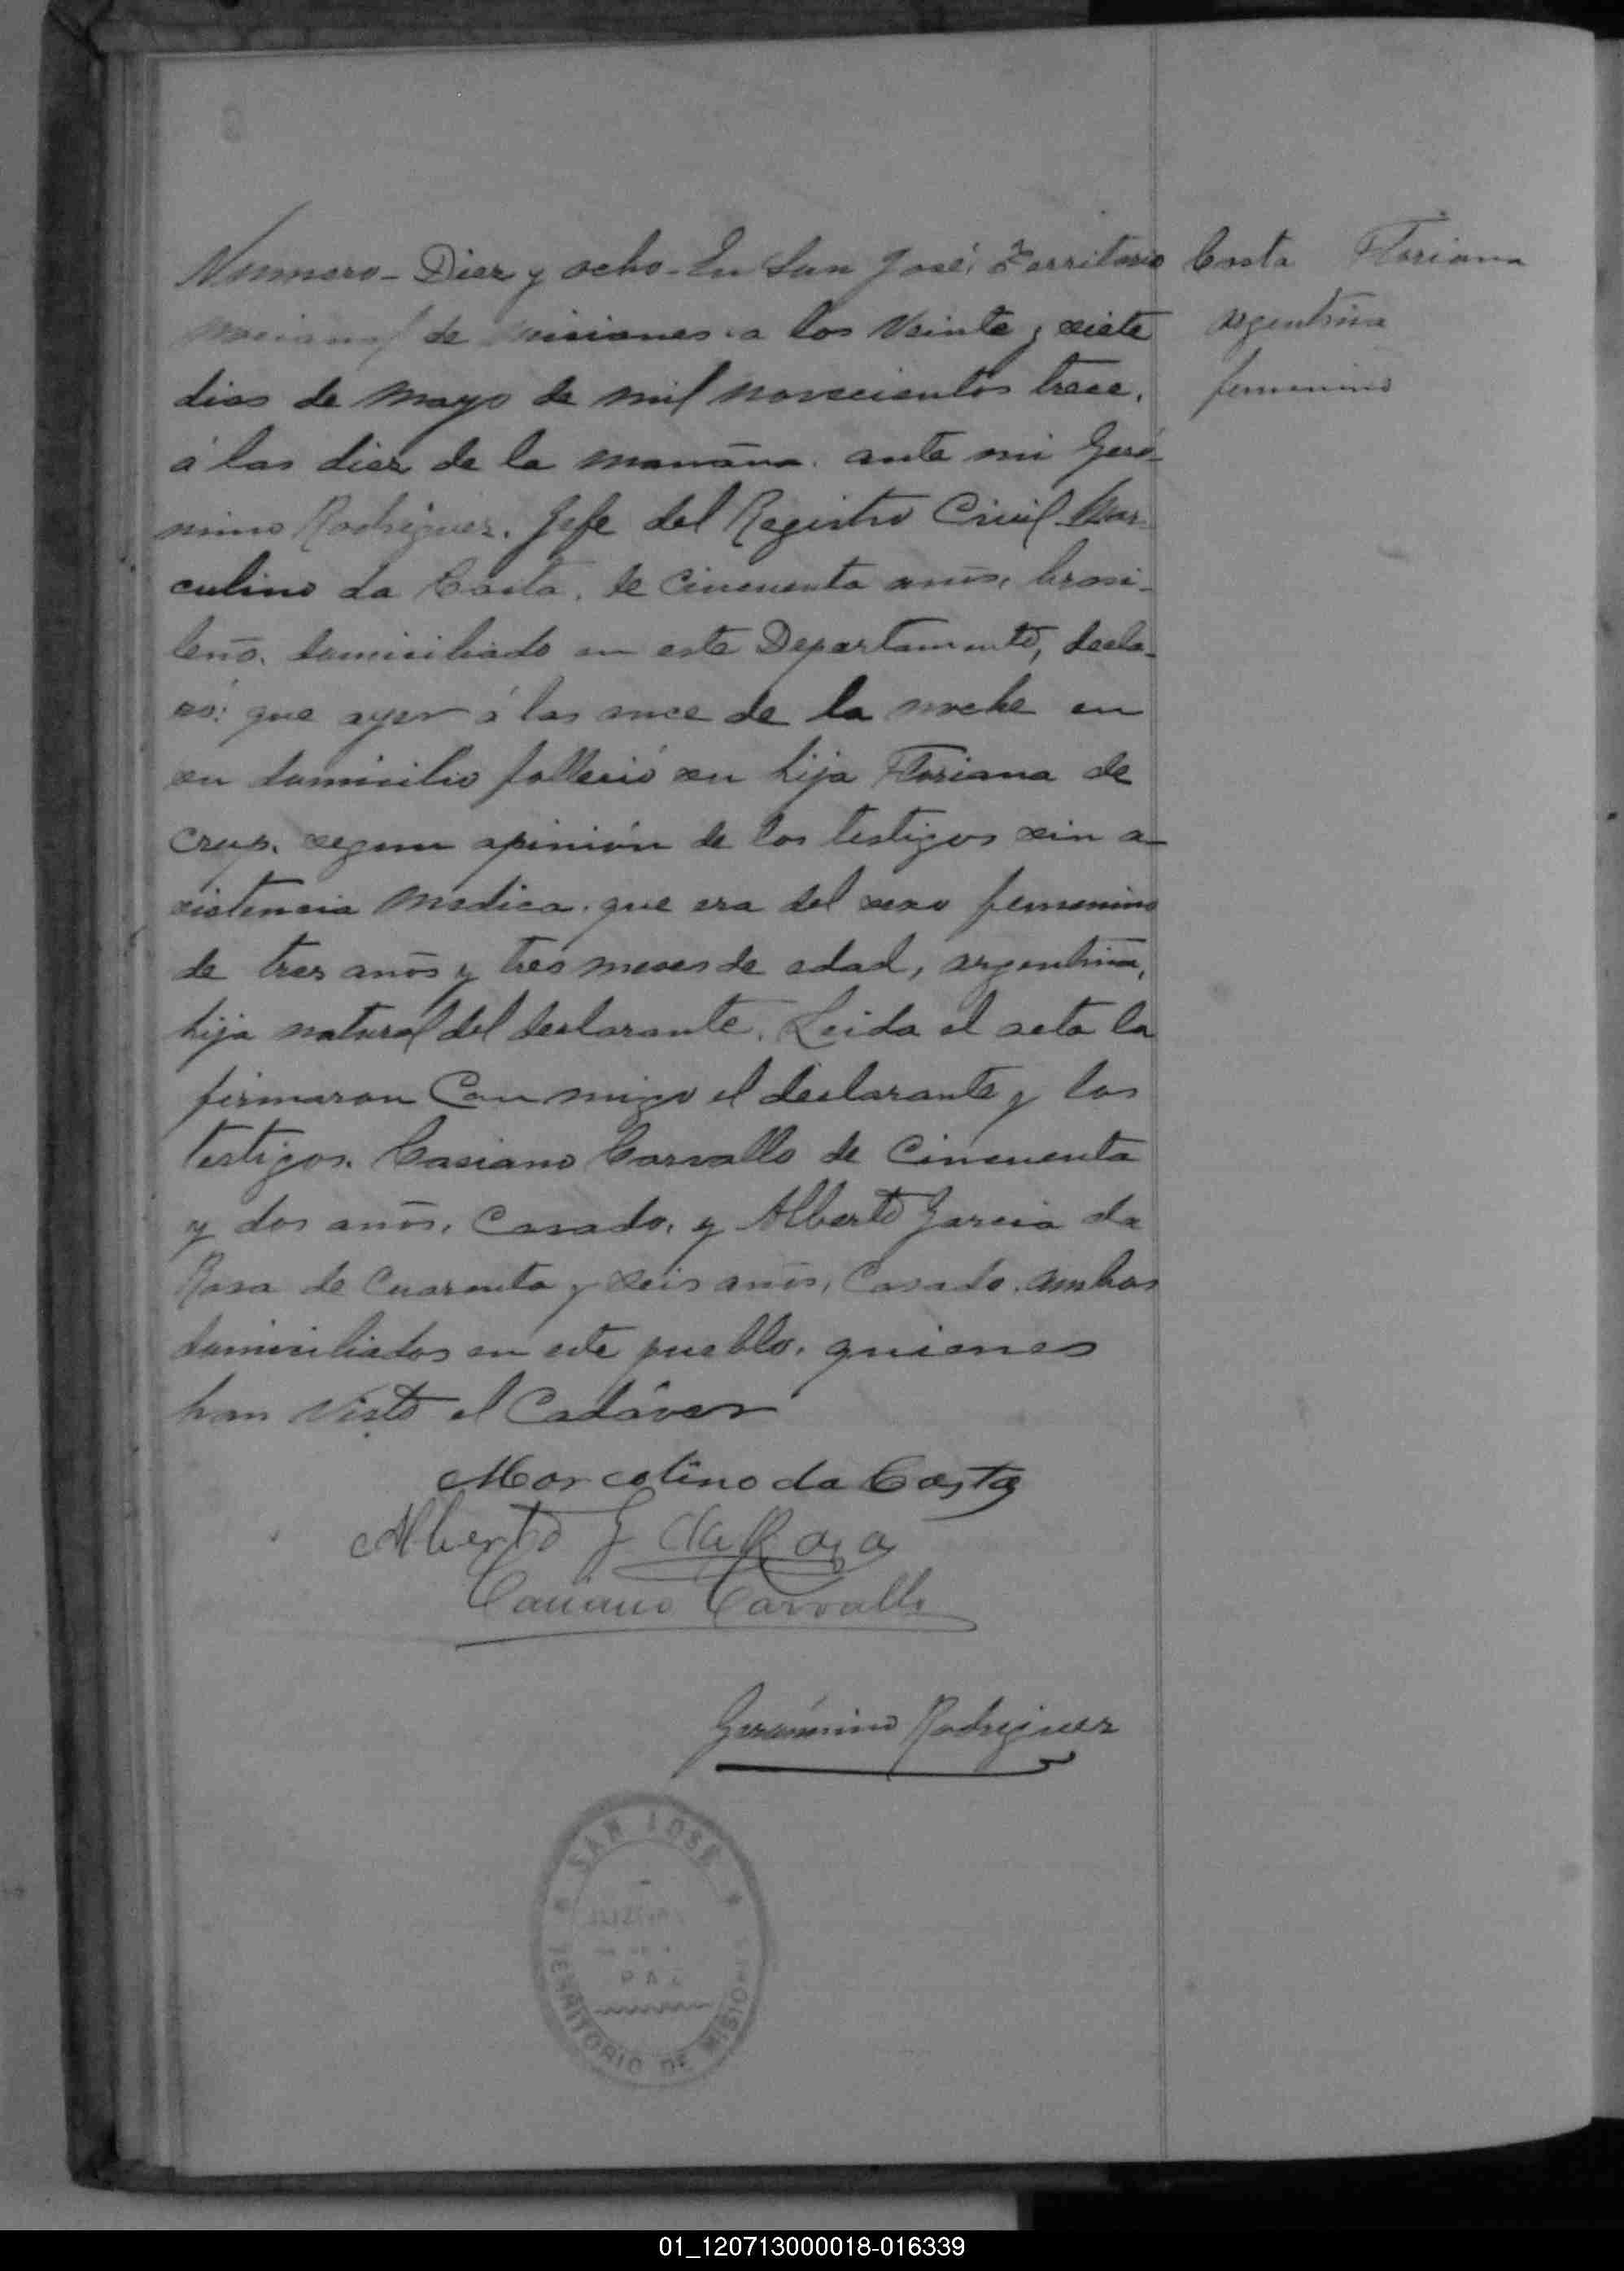 Numero - Diez y ocho - En San José, Territorio
Nacional de Misiones a los Veinte y siete
dias de Mayo de mil novecientos trece,
á las diez de la mañana. ante mi Geró-
nimo Rodriguez. Jefe del Registro Civil Mar-
culino da Costa, de Cincuenta años, brasi-
leño, domiciliado en este Departamento, decla-
ró: que ayer á las once de la noche en
su domicilio falleció su hija Floriana de
Crup. segun opinión de los testigos sin a-
sistencia Medica. que era del sexo femenino
de tres años y tres meses de edad, argentina,
hija natural del declarante. Leida el acta la
firmaron Con migo el declarante y los
testigos. Casiano Carvallo de Cincuenta
y dos años, Casado, y Alberto Garcia da
Rosa de Cuarenta y seis años, Casado. ambos
domiciliados en este pueblo, quienes
han Visto el Cadáver
Costa Floriana
argentina
femenino
Marcolino da Costa
Alberto G da Rosa
Casiano Carvallo
Gerónimo Rodriguez
SAN JOSE
PAZ
TERRITORIO DE MISIONES
01_120713000018-016339